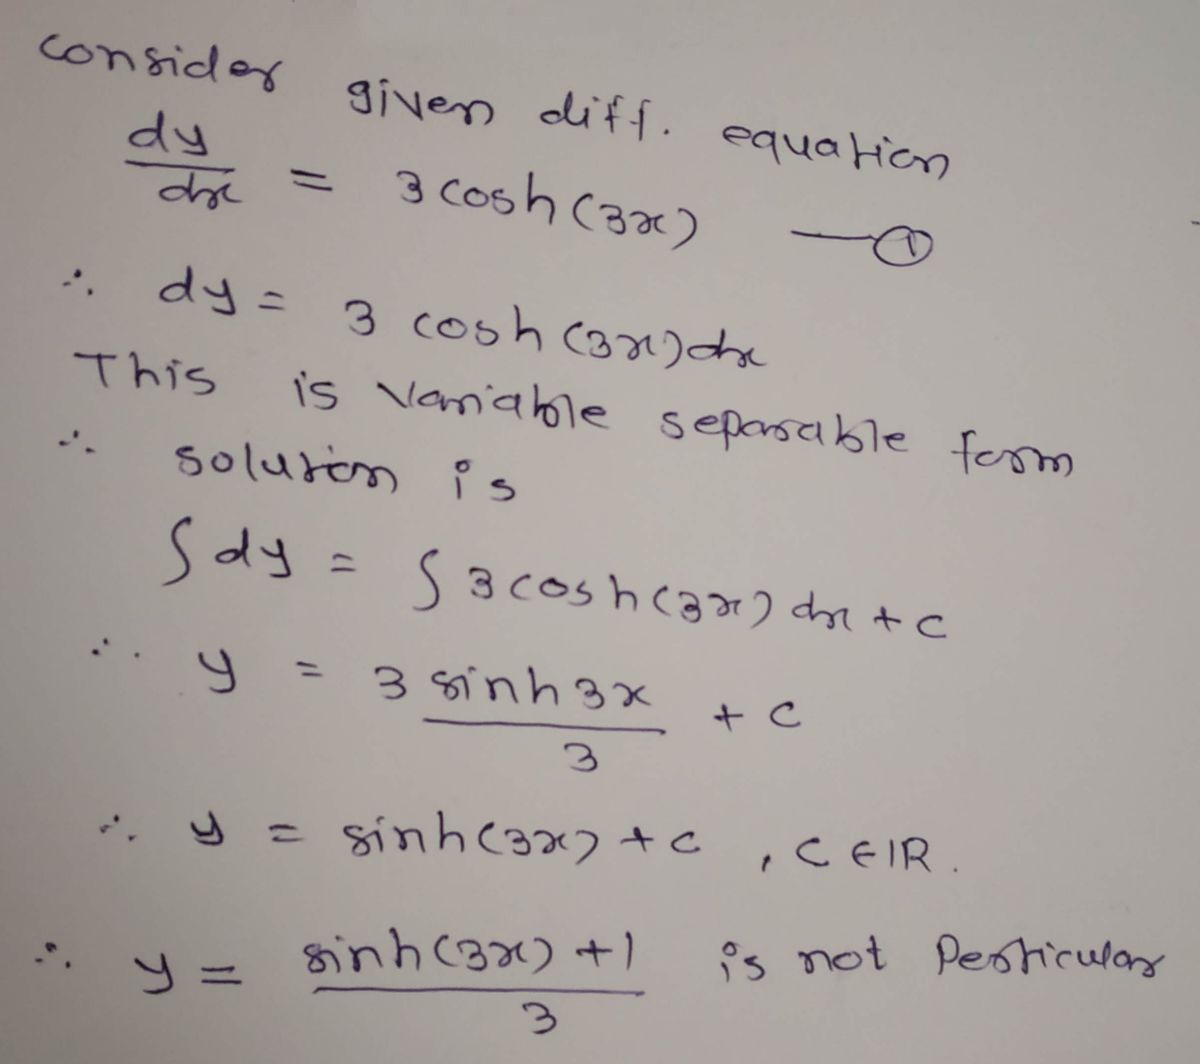 consider given diff. equation
dy/dx = 3 cosh (3x) —①
∴ dy = 3 cosh (3x) dx
This is variable separable form
∴ solution is
∫ dy = ∫ 3 cosh (3x) dx + c
∴ y = 3 sinh 3x / 3 + c
∴ y = sinh (3x) + c , C ∈ IR.
∴ y = sinh (3x) + 1 / 3 is not Perticular